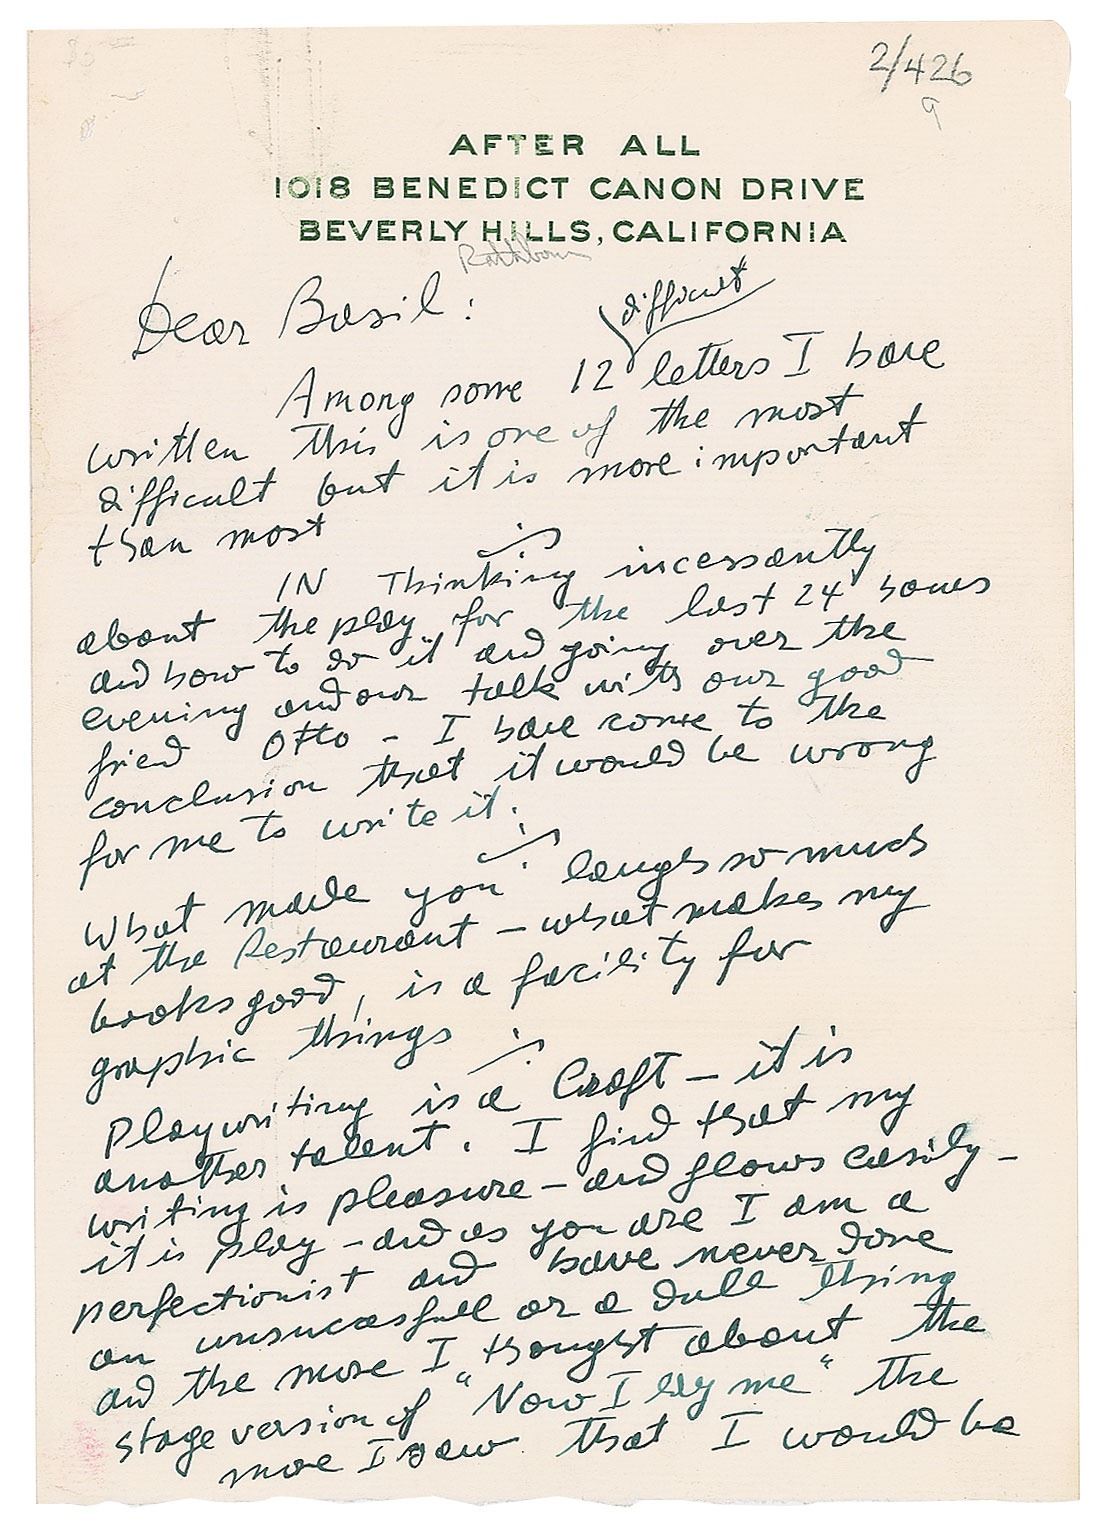 2/426
9
AFTER ALL
1018 BENEDICT CANON DRIVE
BEVERLY HILLS, CALIFORNIA
Rathbone
Dear Basil:
difficult
Among some 12 letters I have
written this is one of the most
difficult but it is more important
than most
IN Thinking incessantly
about the play for the last 24 hours
and how to do it and going over the
evening and our talk with our good
friend Otto - I have come to the
conclusion that it would be wrong
for me to write it.
What made you laugh so much
at the Restaurant - what makes my
books good, is a facility for
graphic things
Playwriting is a Craft - it is
another talent. I find that my
writing is pleasure - and flows easily -
it is play - and as you are I am a
perfectionist and have never done
an unsucessfull or a dull thing
and the more I thought about the
stage version of "Now I lay me" the
more I saw that I would be